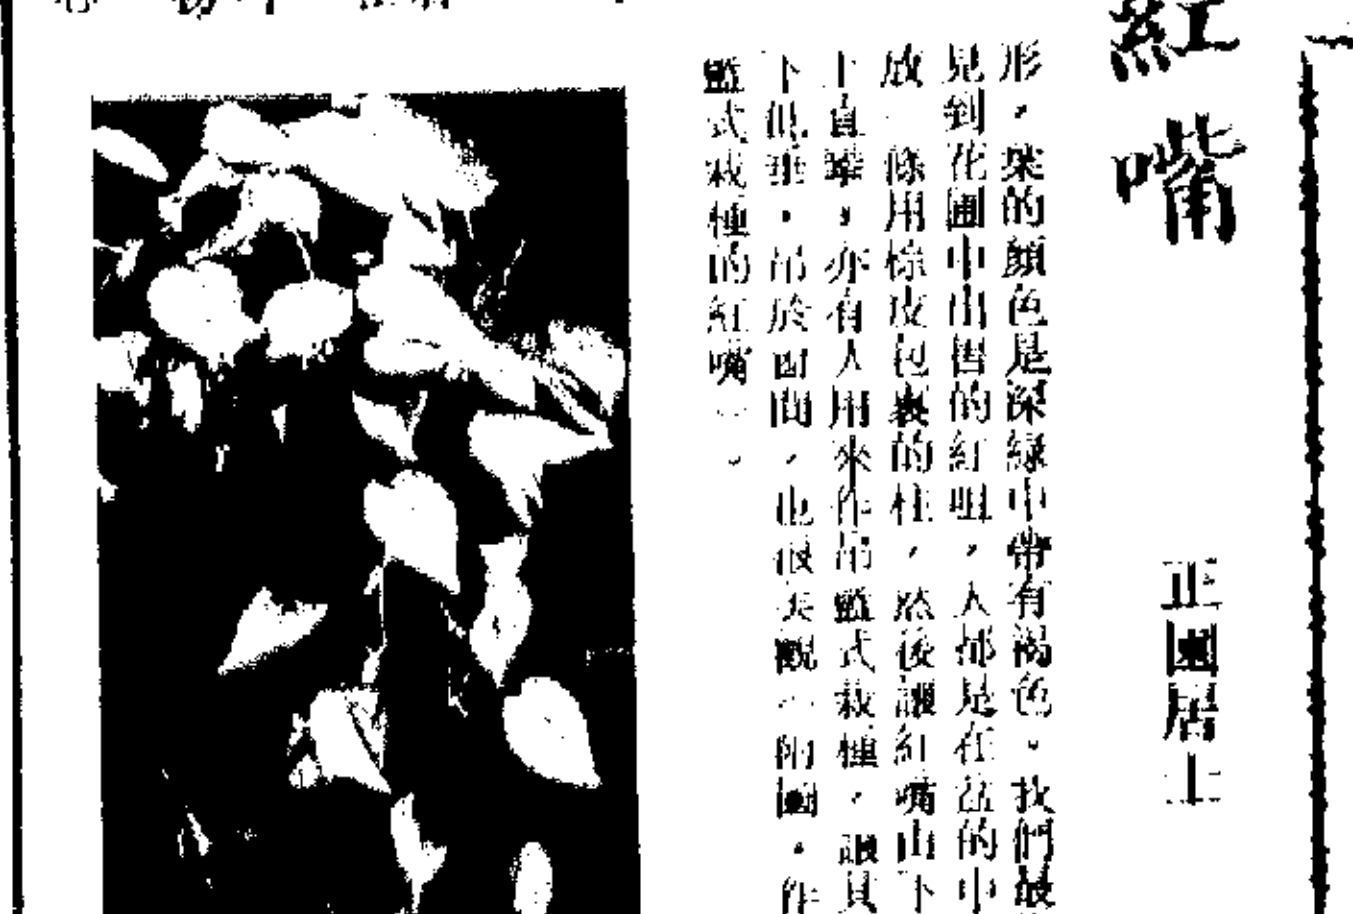 紅嘴
正園居士
形,葉的顏色是深綠中帶有褐色。我們最
見到花圃中出售的紅咀,人都是在盆的中
放一條用棕皮包裹的柱,然後讓紅嘴由下
上直攀,亦有人用來作吊籃式栽種,讓其
下低垂,吊於窗間,也很美觀(附圖,作
籃式栽種的紅嘴)。